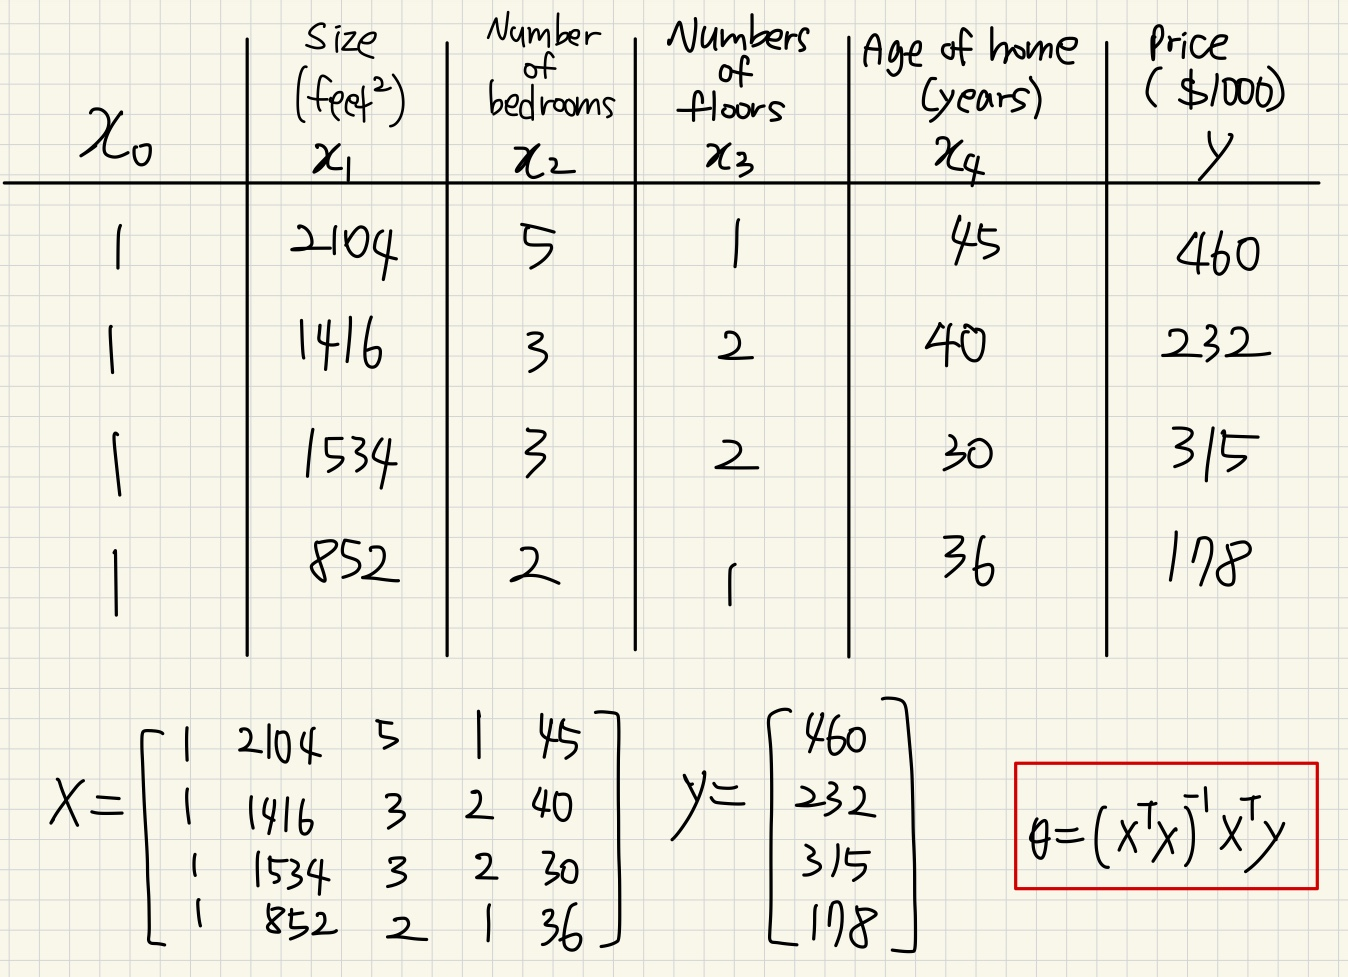 x₀ | Size (feet²) x₁ | Number of bedrooms x₂ | Numbers of floors x₃ | Age of home (years) x₄ | Price ($1000) y
1 | 2104 | 5 | 1 | 45 | 460
1 | 1416 | 3 | 2 | 40 | 232
1 | 1534 | 3 | 2 | 30 | 315
1 | 852 | 2 | 1 | 36 | 178
X = [1 2104 5 1 45
1 1416 3 2 40
1 1534 3 2 30
1 852 2 1 36]
y = [460
232
315
178]
θ = (XᵀX)⁻¹Xᵀy